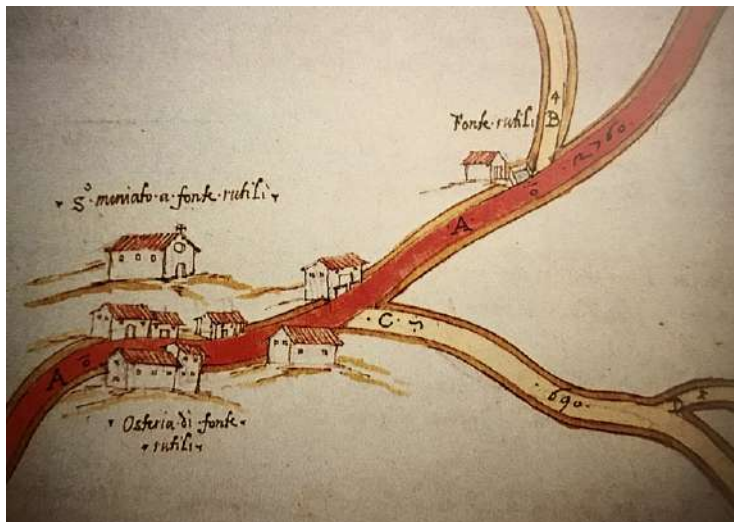 Fonte·rutili
4
B
·12760·
S.º miniato·a·fonte·rutili
A
C
·690·
D
A
Osteria·di·fonte·
·rutili·